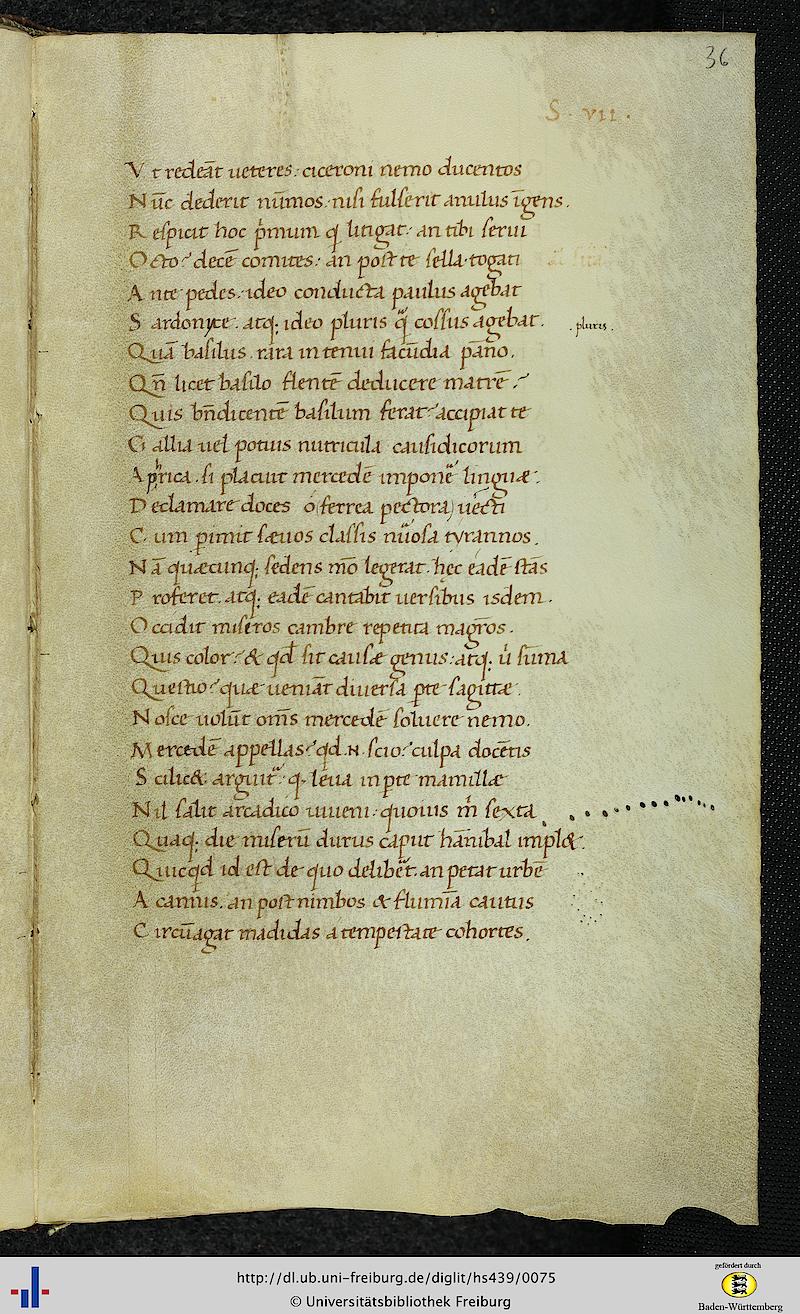 36
S · VII ·
V t redeāt ueteres · ciceroni nemo ducentos
N ūc dederit nūmos · nisi fulserit anulus īgens.
R espicit hoc p̍mum q̍ litigat · an tibi serui
O cto · decē comites · an post te sella · togati
A nte pedes · ideo conducta paulus agebat
S ardonyce · atq; ideo pluris q̄ cossus agebat. · pluris ·
Quā basilus · rara in tenui facūdia pāno.
Qn̄ licet basilo flentē deducere matrē ·
Quis bn̄dicentē basilum ferat · accipiat te
G allia uel potius nutricula causidicorum
A prica · si placuit mercedē imponē linguæ ·
D eclamare doces o ferrea pectora uecti
C um pimit sæuos classis nūosa tyrannos.
N ā quæcunq; sedens mō legerat · hęc eadē stās
P roferet · atq; eadē cantabit uersibus isdem ·
O ccidit miseros cambre repetita magr̄os ·
Quis color · & qd̄ sit causæ genus · atq; u̍ sūma
Questio · quæ ueniāt diuersa pte sagittæ ·
N osce uolūt om̄s mercedē soluere nemo.
M ercedē appellas · qd · N · scio · culpa docētis
S cilic& arguit̄ · q · leua in pte mamillæ
N il salit arcadico iuueni · quoius m̍ sexta
Quaq; die miserū durus caput hānibal impl& ·
Quicqd id est de quo delibēt · an petat urbē
A cannis · an post nimbos & flumīa cautus
C ircūagat madidas a tempestate cohortes.
http://dl.ub.uni-freiburg.de/diglit/hs439/0075
© Universitätsbibliothek Freiburg
gefördert durch
Baden-Württemberg